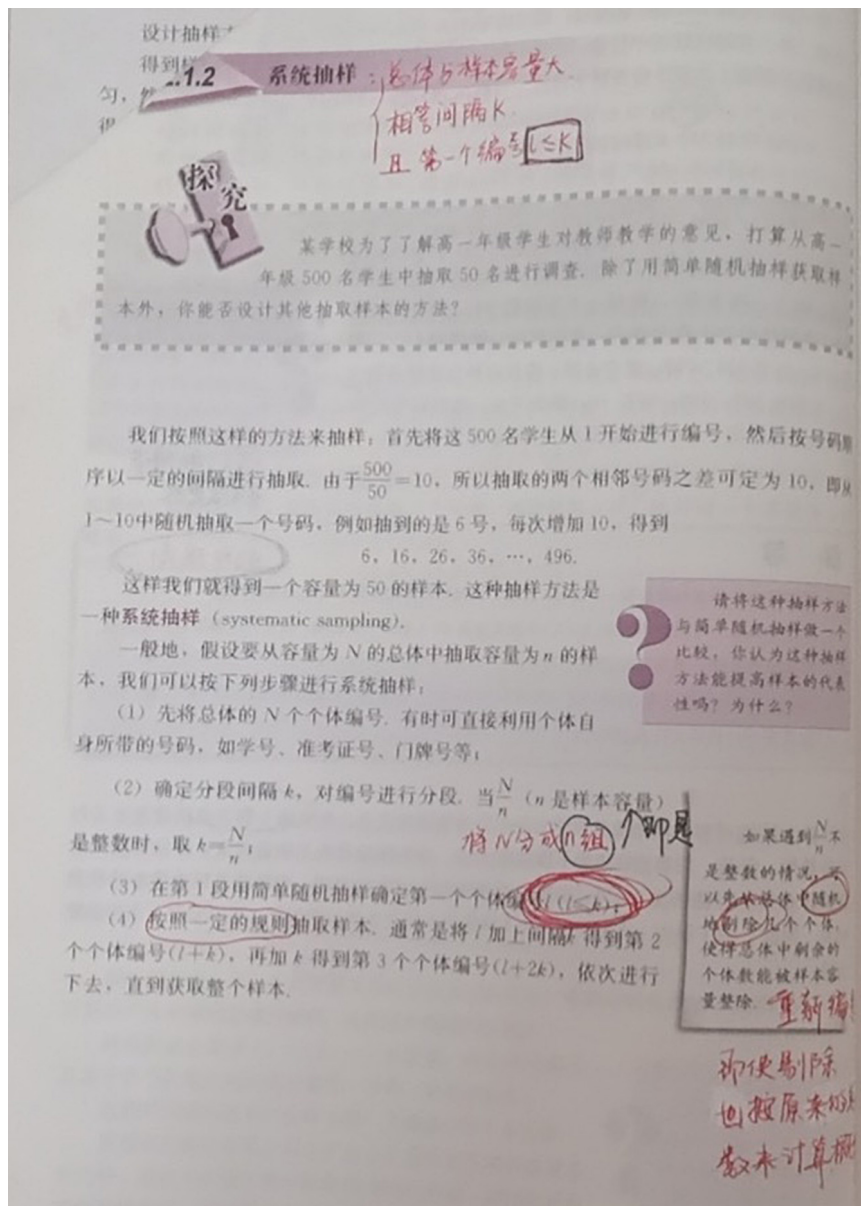 设计抽样
得到样
匀，然
得
2.1.2 系统抽样：总体与样本容量大
相等间隔K
且 第一个编号l≤K
探究
某学校为了了解高一年级学生对教师教学的意见，打算从高一
年级 500 名学生中抽取 50 名进行调查. 除了用简单随机抽样获取样
本外，你能否设计其他抽取样本的方法？
我们按照这样的方法来抽样：首先将这 500 名学生从 1 开始进行编号，然后按号码顺
序以一定的间隔进行抽取. 由于500/50=10，所以抽取的两个相邻号码之差可定为 10，即从
1～10中随机抽取一个号码，例如抽到的是 6 号，每次增加 10，得到
6，16，26，36，…，496.
这样我们就得到一个容量为 50 的样本. 这种抽样方法是
一种系统抽样（systematic sampling）.
一般地，假设要从容量为 N 的总体中抽取容量为 n 的样
本，我们可以按下列步骤进行系统抽样：
（1）先将总体的 N 个个体编号. 有时可直接利用个体自
身所带的号码，如学号、准考证号、门牌号等；
（2）确定分段间隔 k，对编号进行分段. 当N/n（n 是样本容量）
是整数时，取 k=N/n；
将N分成n组 个即是
（3）在第 1 段用简单随机抽样确定第一个个体编号l（l≤k）；
（4）按照一定的规则抽取样本. 通常是将 l 加上间隔k 得到第 2
个个体编号(l+k)，再加 k 得到第 3 个个体编号(l+2k)，依次进行
下去，直到获取整个样本.
请将这种抽样方法
与简单随机抽样做一个
比较，你认为这种抽样
方法能提高样本的代表
性吗？为什么？
如果遇到N/n不
是整数的情况，可
以先从总体中随机
地剔除几个个体，
使得总体中剩余的
个体数能被样本容
量整除. 重新编
即使剔除
也按原来的
数来计算概